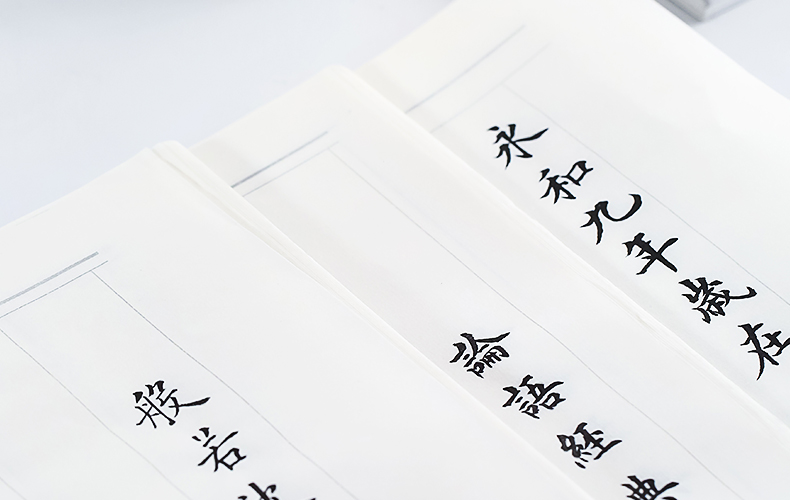 永和九年歲在
論語經典
般若